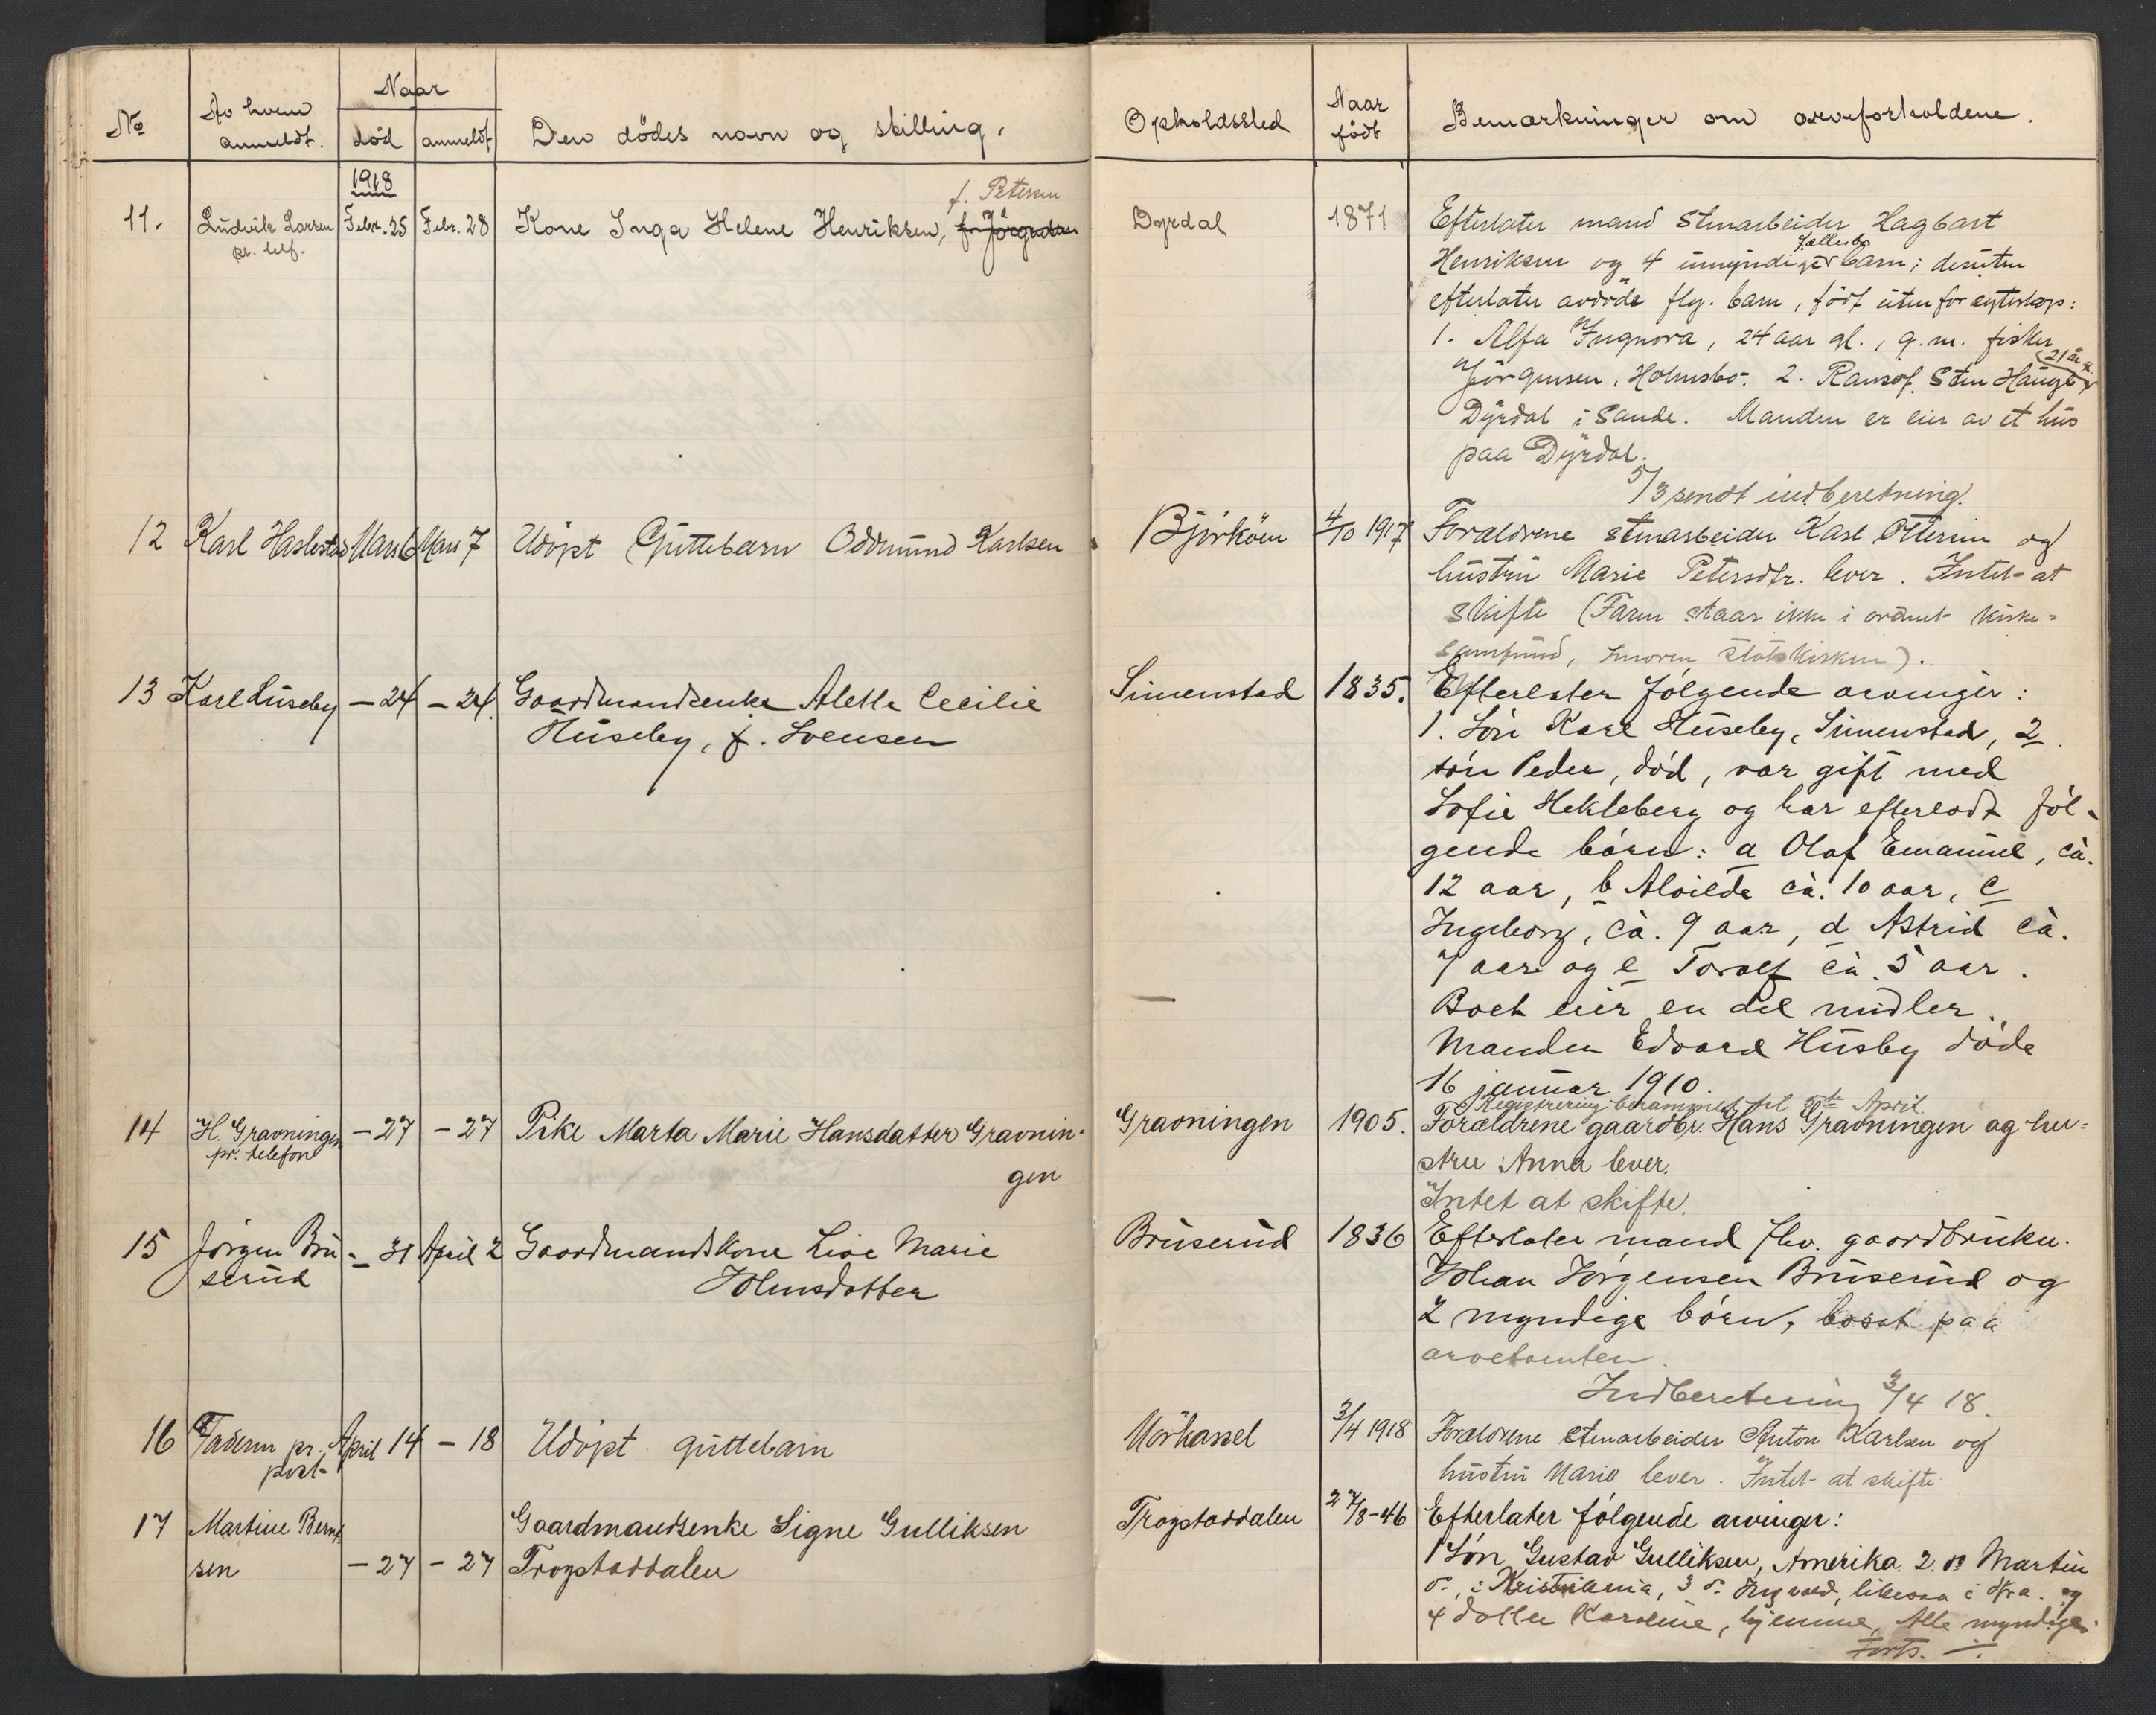 No
Av hvem anmeldt.
Naar
død
anmeldt
Den dödes navn og stilling.
Opholdssted
Naar født
Bemærkninger om arveforholdene.
1918
11.
Ludvik Larsen
pr. telf.
Febr. 25
Febr. 28
Kone Inga Helene Henriksen, f. Jörgensen
f. Petersen
Dyrdal
1871
Efterlater mand stenarbeider Hagbart
Henriksen og 4 umyndige fællesbarn; desuten
efterlater avdöde flg. barn, födt utenfor egteskap:
1. Alfa Ingnora, 24 aar gl., g. m. fisker
Jörgensen, Holmsbo. 2. Sten Haugb 21 år
Dyrdal i Sande. Manden er eier av et hus
paa Dyrdal.
5/3 sendt indberetning.
12
Karl Haslestad
Mars 6
Mars 7
Udöpt Guttebarn Oddmund Karlsen
Björköen
4/10 1917
Forældrene stenarbeider Karl Ottersen og
hustru Marie Petersdtr. lever. Intet at
skifte (Faren staar ikke i ordnet kirke-
samfund, moren statskirken).
13
Karl Huseby
- 24
- 24.
Gaardmandsenke Alette Cecilie
Huseby, f. Svensen
Simenstad
1835.
Efterlater følgende arvinger:
1. Sön Karl Huseby, Simenstad, 2
sön Peder, död, var gift med
Sofie Hekleberg og har efterladt föl-
gende börn: a Olaf Emanuel, ca.
12 aar, b Alvilde ca. 10 aar, c
Ingeborg, ca. 9 aar, d Astrid ca.
7 aar og e Toralf ca. 5 aar.
Boet eier en del midler.
Manden Edvard Husby döde
16 januar 1910.
Registrering berammet til 5te April.
14
H. Gravningen
pr. telefon
- 27
- 27
Pike Marta Marie Hansdatter Gravnin-
gen
Gravningen
1905.
Forældrene gaardbr. Hans Gravningen og hu-
stru Anna lever.
Intet at skifte.
15
Jörgen Bru-
serud
- 31
April 2
Gaardmandskone Live Marie
Johnsdatter
Bruserud
1836
Efterlater mand fhv. gaardbruker
Johan Jörgensen Bruserud og
2 myndige börn, bosat paa
arvetomten.
Indberetning 3/4 18.
16
Faderen pr.
post
April 14
- 18
Udöpt guttebarn
Mörkassel
3/4 1918
Forældrene stenarbeider Anton Karlsen og
hustru Marie lever. Intet at skifte
17
Martine Bernt-
sen
- 27
- 27
Gaardmandsenke Signe Gulliksen
Trogstaddalen
Trogstaddalen
27/8-46
Efterlater følgende arvinger:
1 Sön Gustav Gulliksen, Amerika. 2. do Martin
do., i Kristiania, 3 do. Ingvald, likesaa i Kra. og
4 datter Karoline, hjemme. Alle myndige.
Forts. ./.